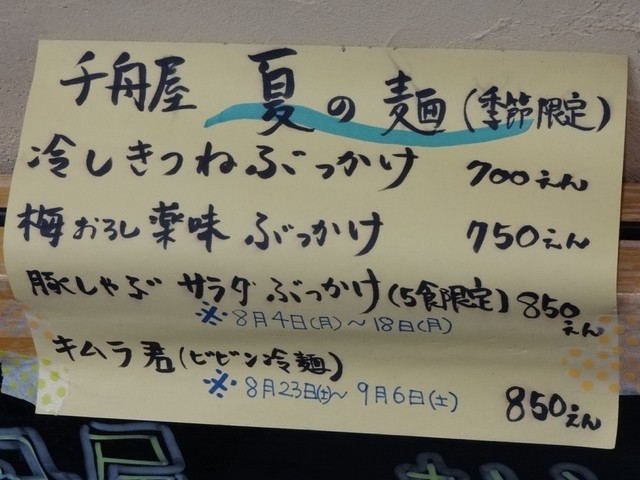 千舟屋 夏の麺(季節限定)
冷しきつねぶっかけ 700えん
梅おろし薬味ぶっかけ 750えん
豚しゃぶサラダぶっかけ(5食限定) 850えん
※8月4日(月)〜18日(月)
キムラ君(ビビン冷麺)
※8月23日(土)〜9月6日(土) 850えん